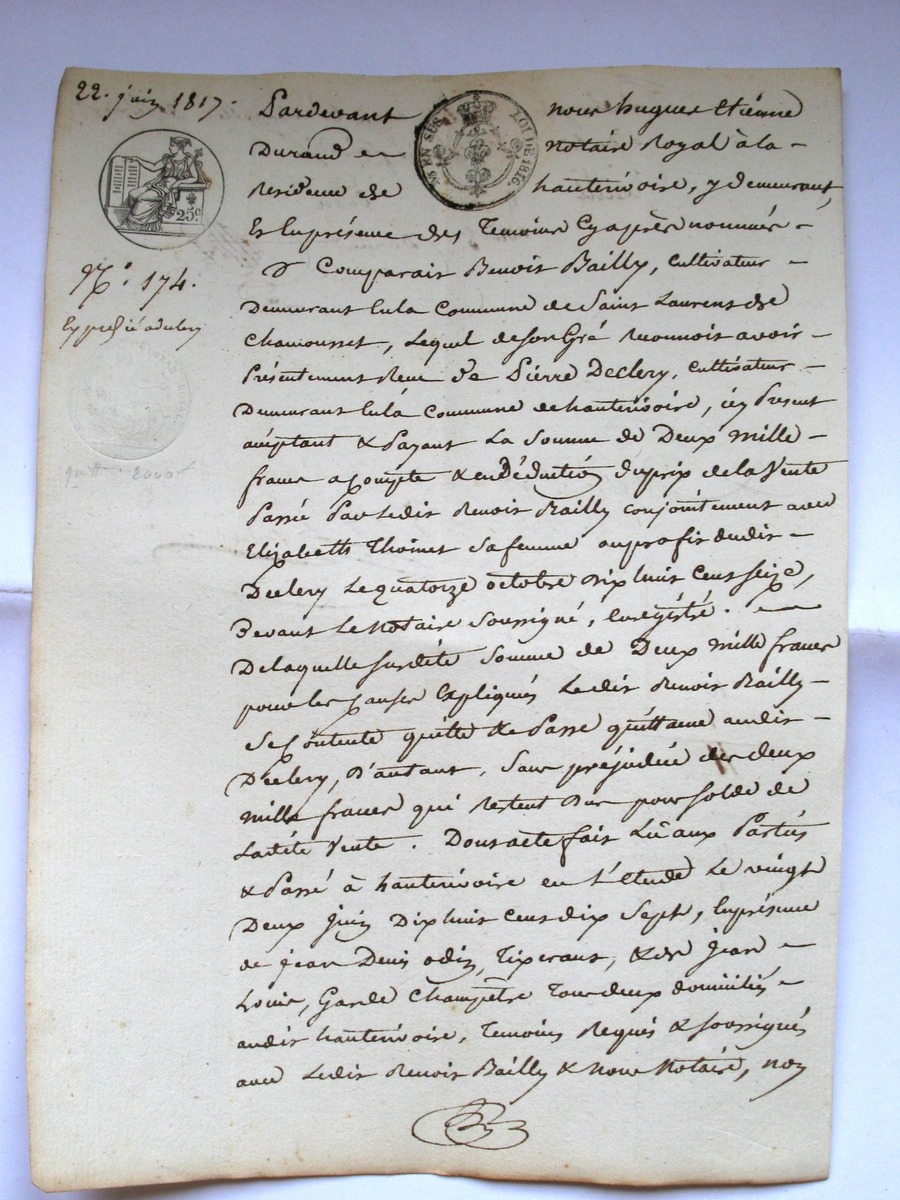 22. juin 1817.
Pardevant nous hugues Etienne
Durand Notaire Royal à la
Residence de hauterivoire, y demeurant,
Et En présence des Temoins Cyaprès nommés
Comparait Benoit Bailly, Cultivateur
Demeurant En la Commune de Saint Laurent de
Chamousset, Lequel de Son Gré Reconnoit avoir
Présentement Reçu de Pierre Declery, Cultivateur
Demeurant En la Commune de hauterivoire, icy Present
acceptant & Payant La Somme de Deux mille
francs acompte & en Déduction du prix de la Vente
Passée Par Ledit Benoit Bailly conjointement avec
Elizabeth Thoinet sa femme au profit dudit
Declery Le quatorze octobre dix huit Cent Seize,
Devant Le Notaire Soussigné, Enregistré.
De laquelle Susdite Somme de Deux mille francs
pour les causes Expliquées Ledit Benoit Bailly
Se Contente quitte & Passe quittance audit
Declery, D'autant, Sans préjudice des deux
mille francs qui restent Dus pour Solde de
Ladite Vente. Dont acte fait Lû aux Parties
& Passé à hauterivoire en L'étude Le vingt
Deux Juin Dix huit Cent dix Sept, En présence
de Jean Denis odin, Tixerant, & de Jean
Louis, Garde Champêtre Tous deux domiciliés
audit hauterivoire, Temoins Requis & Soussignés
avec Ledit Benoit Bailly & Nous Notaire, non
EN SUS. LOI DE 1816.
25c
No. 174.
Expedié a declery
quitt. 2000